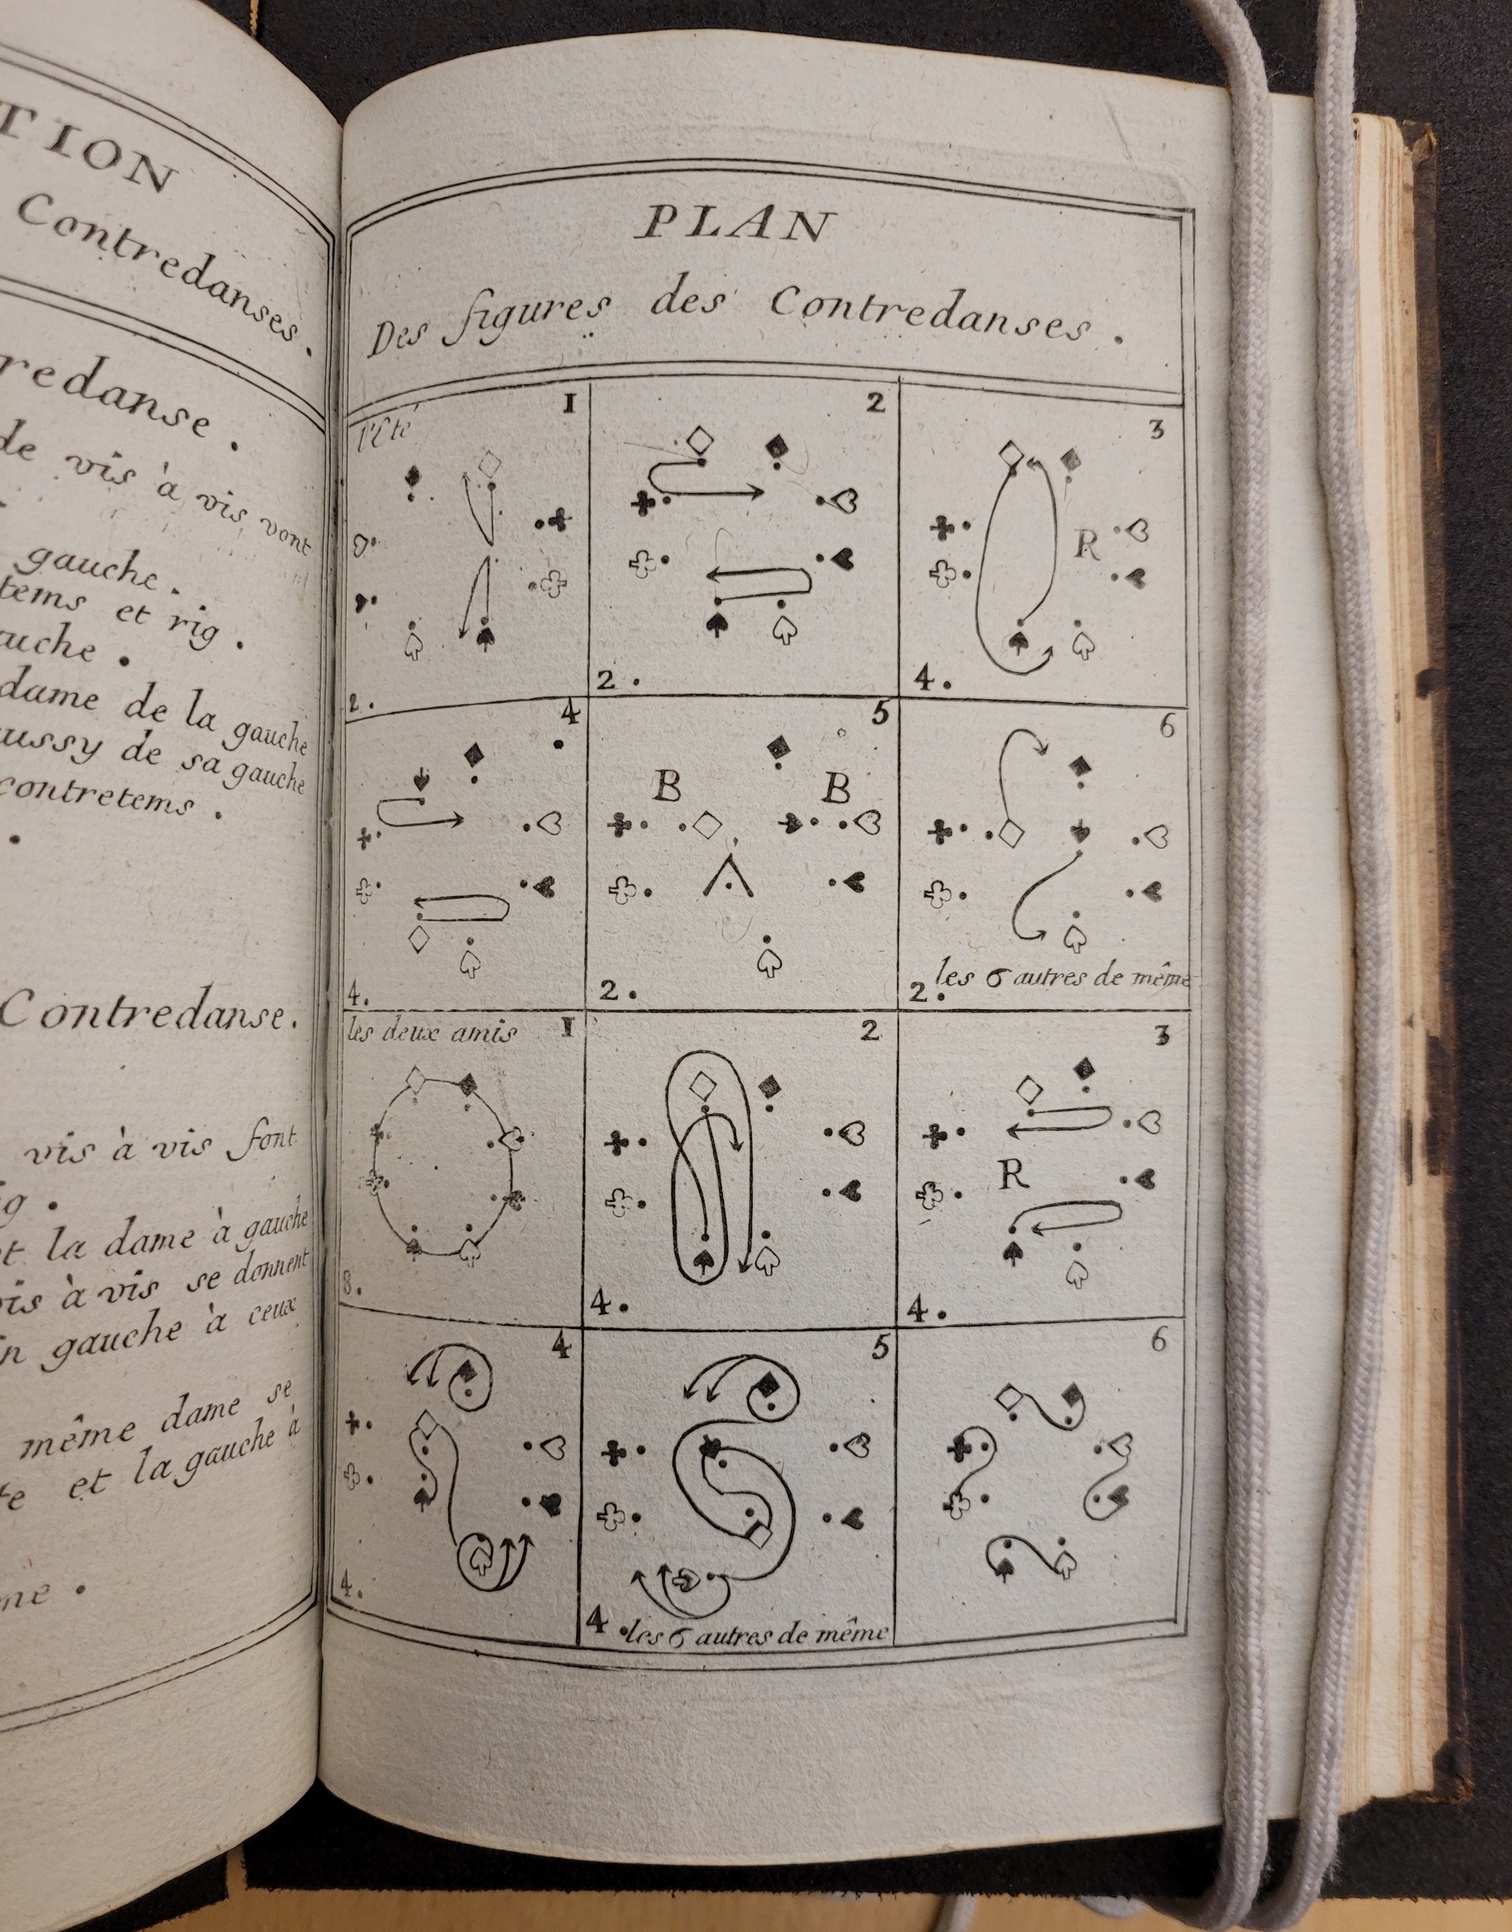 TION
Contredanses.
redanse.
de vis à vis vont
gauche.
tems et rig.
auche.
dame de la gauche
aussy de sa gauche
contretems.
Contredanse.
vis à vis font
et la dame à gauche
vis à vis se donnent
in gauche à ceux
même dame se
et la gauche à
me.
PLAN
Des figures des Contredanses.
l'Eté 1
2.
2
2.
3
R
4.
4
4.
5
B B
2.
6
2. les 6 autres de même
les deux amis 1
8.
2
4.
3
R
4.
4
4.
5
4. les 6 autres de même
6